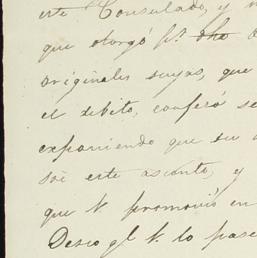 este Consulado, y
que otorgó pr. dho
originales suyas, que
el debito, conferó se
exponiendo que su
soi este asunto, y
que V. promovió en
Deseo qe V. lo pase